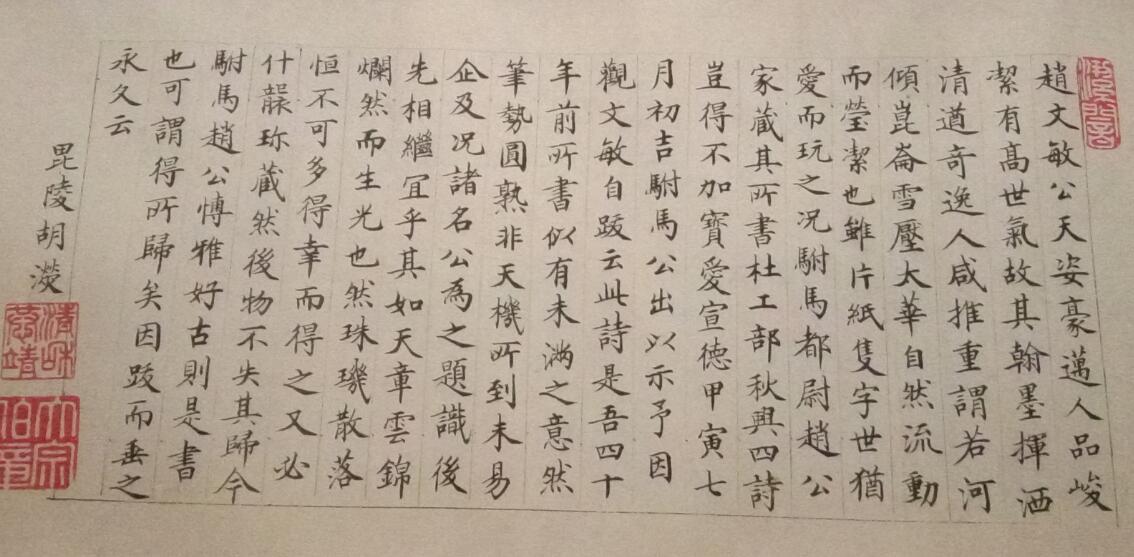 趙文敏公天姿豪邁人品峻
潔有髙世氣故其翰墨揮洒
清遒奇逸人咸推重謂若河
傾崑崙雪壓太華自然流動
而瑩潔也雖片紙隻字世猶
愛而玩之况駙馬都尉趙公
家蔵其所書杜工部秋興四詩
豈得不加寳愛宣徳甲寅七
月初吉駙馬公出以示予因
觀文敏自跋云此詩是吾四十
年前所書似有未滿之意然
筆勢圓熟非天機所到未易
企及况諸名公為之題識後
先相繼冝乎其如天章雲錦
爛然而生光也然珠璣散落
恒不可多得幸而得之又必
什襲珎蔵然後物不失其歸今
駙馬趙公愽雅好古則是書
也可謂得所歸矣因跋而垂之
永久云
毘陵胡濙
清和恭靖
大宗伯章